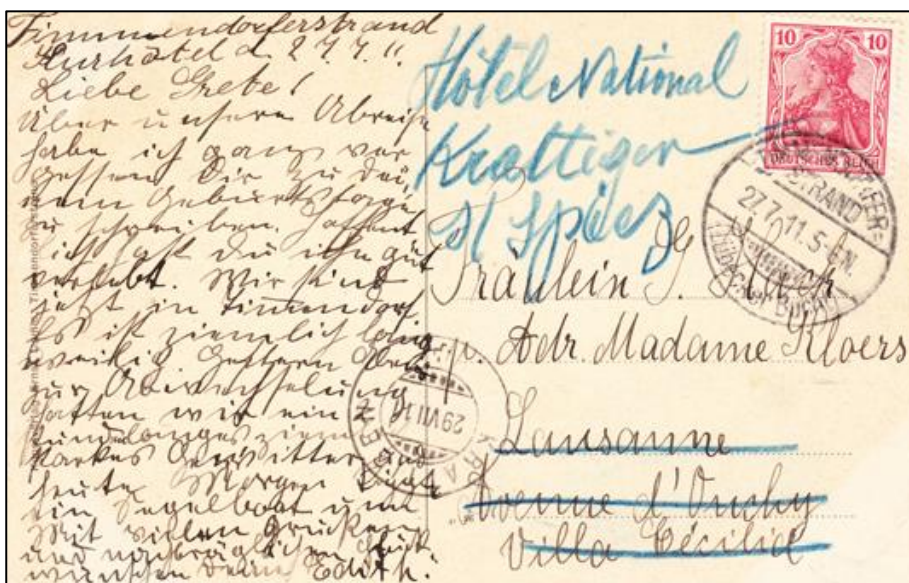 Timmendorferstrand
Kurhotel d. 27.7.11.
Liebe Grete!
Über unsere Abreise
habe ich ganz ver
gessen Dir zu Dei
nem Geburtstage
zu schreiben. Hoffent
lich hast du ihn gut
verlebt. Wir sind
jetzt in Timmendorf
Es ist ziemlich lang
weilig gestern Abend
zur Abwechselung
hatten wir ein
stundenlanges ziemlich
starkes Gewitter und
heute Morgen
ein Segelboot um.
Mit vielen Grüssen
und nachträglichen Glück
wünschen Deine Edith.
Hôtel National
Krattigen
s/ Spiez
10 10
DEUTSCHES REICH
STRAND
27.7.11.5-6N.
Fräulein G.
p. Adr. Madame Kloers
Lausanne
Avenue d'Ouchy
Villa Cécilia
29.VII.11